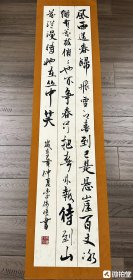 風雨送春歸飛雪迎春到已是悬崖百丈冰
猶有花枝俏俏也不争春只把春来報待到山
花爛漫時她在丛中笑
仲夏
微拍堂